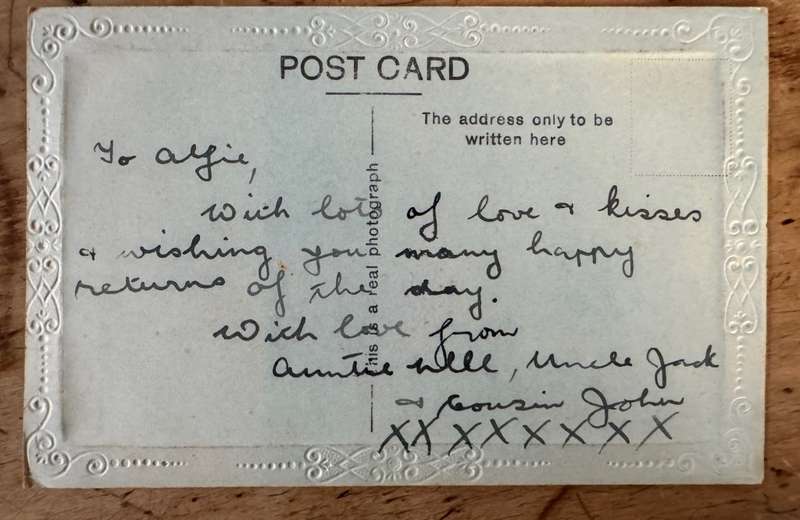 POST CARD
The address only to be
written here
This is a real photograph
To Alfie,
With lots of love & kisses
& wishing you many happy
returns of the day.
With love from
Auntie Nell, Uncle Jack
& Cousin John
XXXXXXXX